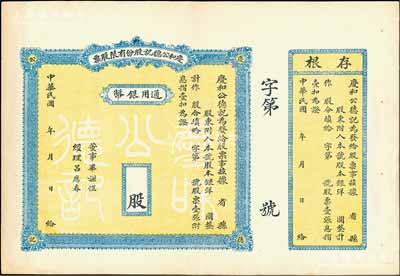 慶和公德記股份有限股票
慶
公
德
記
通用銀幣
慶和公德記為發給股票事茲據 省 縣
股東附入本號股本銀洋 圓整
計作 股合填給 字第 號股票壹張附
息摺壹扣為證
董事畢淑恆
經理呂應春
中華民國 年 月 日 給
股
字第 號
存根
慶和公德記為發給股票事茲據 省 縣
股東附入本號股本銀洋 圓整計
作 股合填給 字第 號股票壹張息摺
壹扣為證
中華民國 年 月 日 給